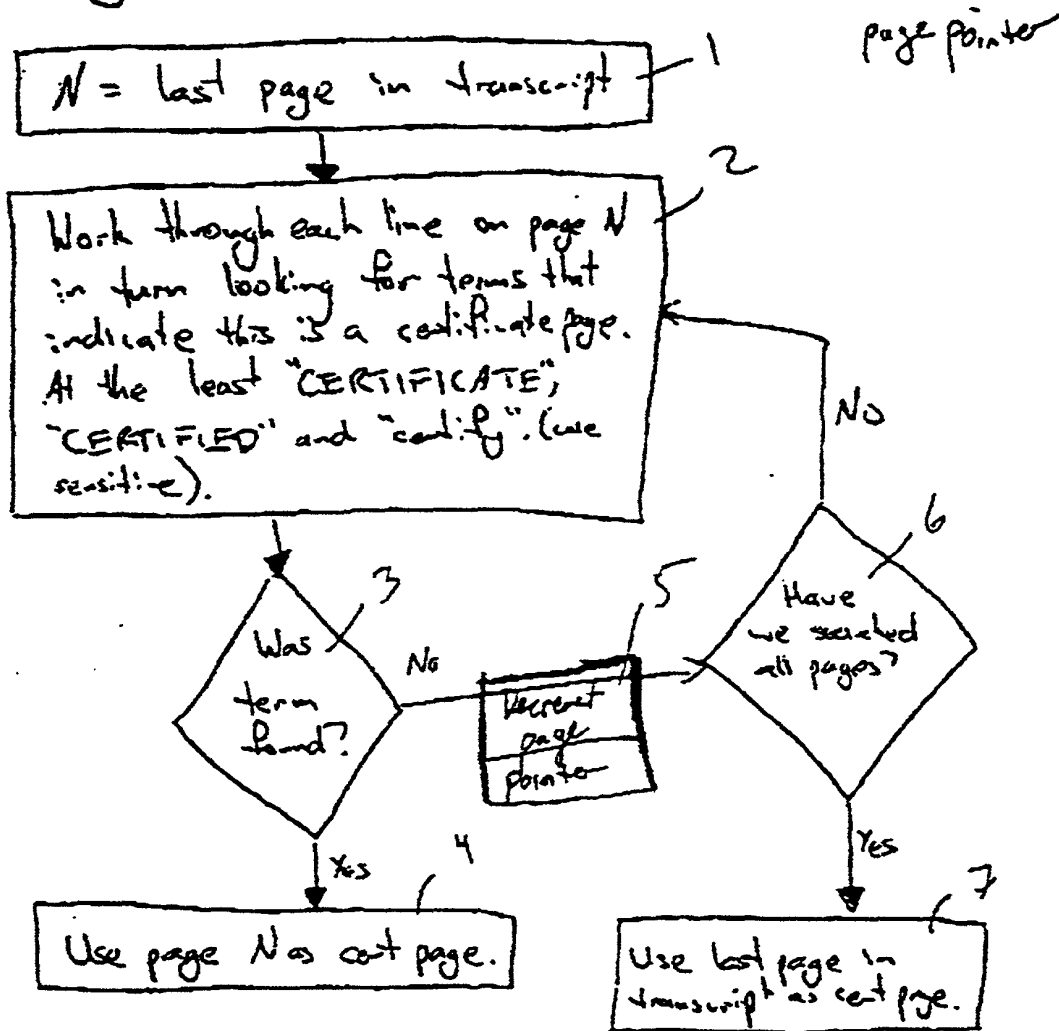 page pointer
N = last page in transcript
1
2
Work through each line on page N
in turn looking for terms that
indicate this is a certificate page.
At the least "CERTIFICATE",
"CERTIFIED" and "certify". (case
sensitive).
No
6
3
5
Have
we searched
all pages?
Was
term
found?
No
Decrement
page
pointer
Yes
4
Yes
7
Use page N as cert page.
Use last page in
transcript as cert page.